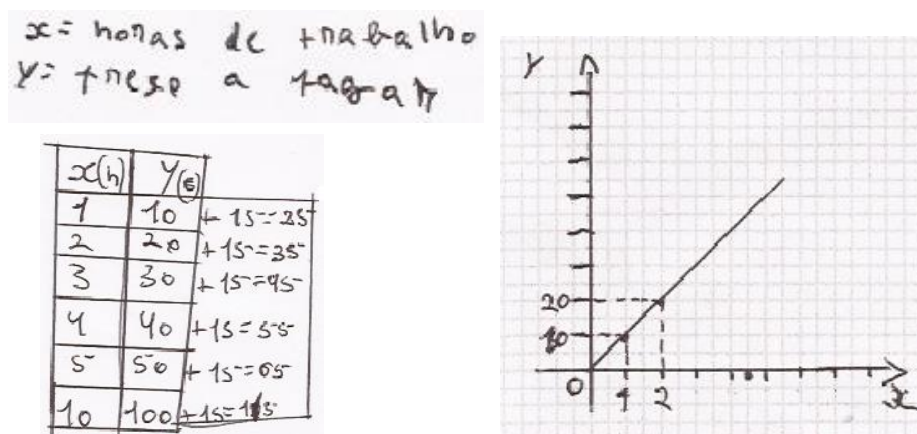 x = horas de trabalho
y = preço a pagar
x(h) y(€)
1 10 + 15 = 25
2 20 + 15 = 35
3 30 + 15 = 45
4 40 + 15 = 55
5 50 + 15 = 65
10 100 + 15 = 115
y
20
10
0 1 2 x